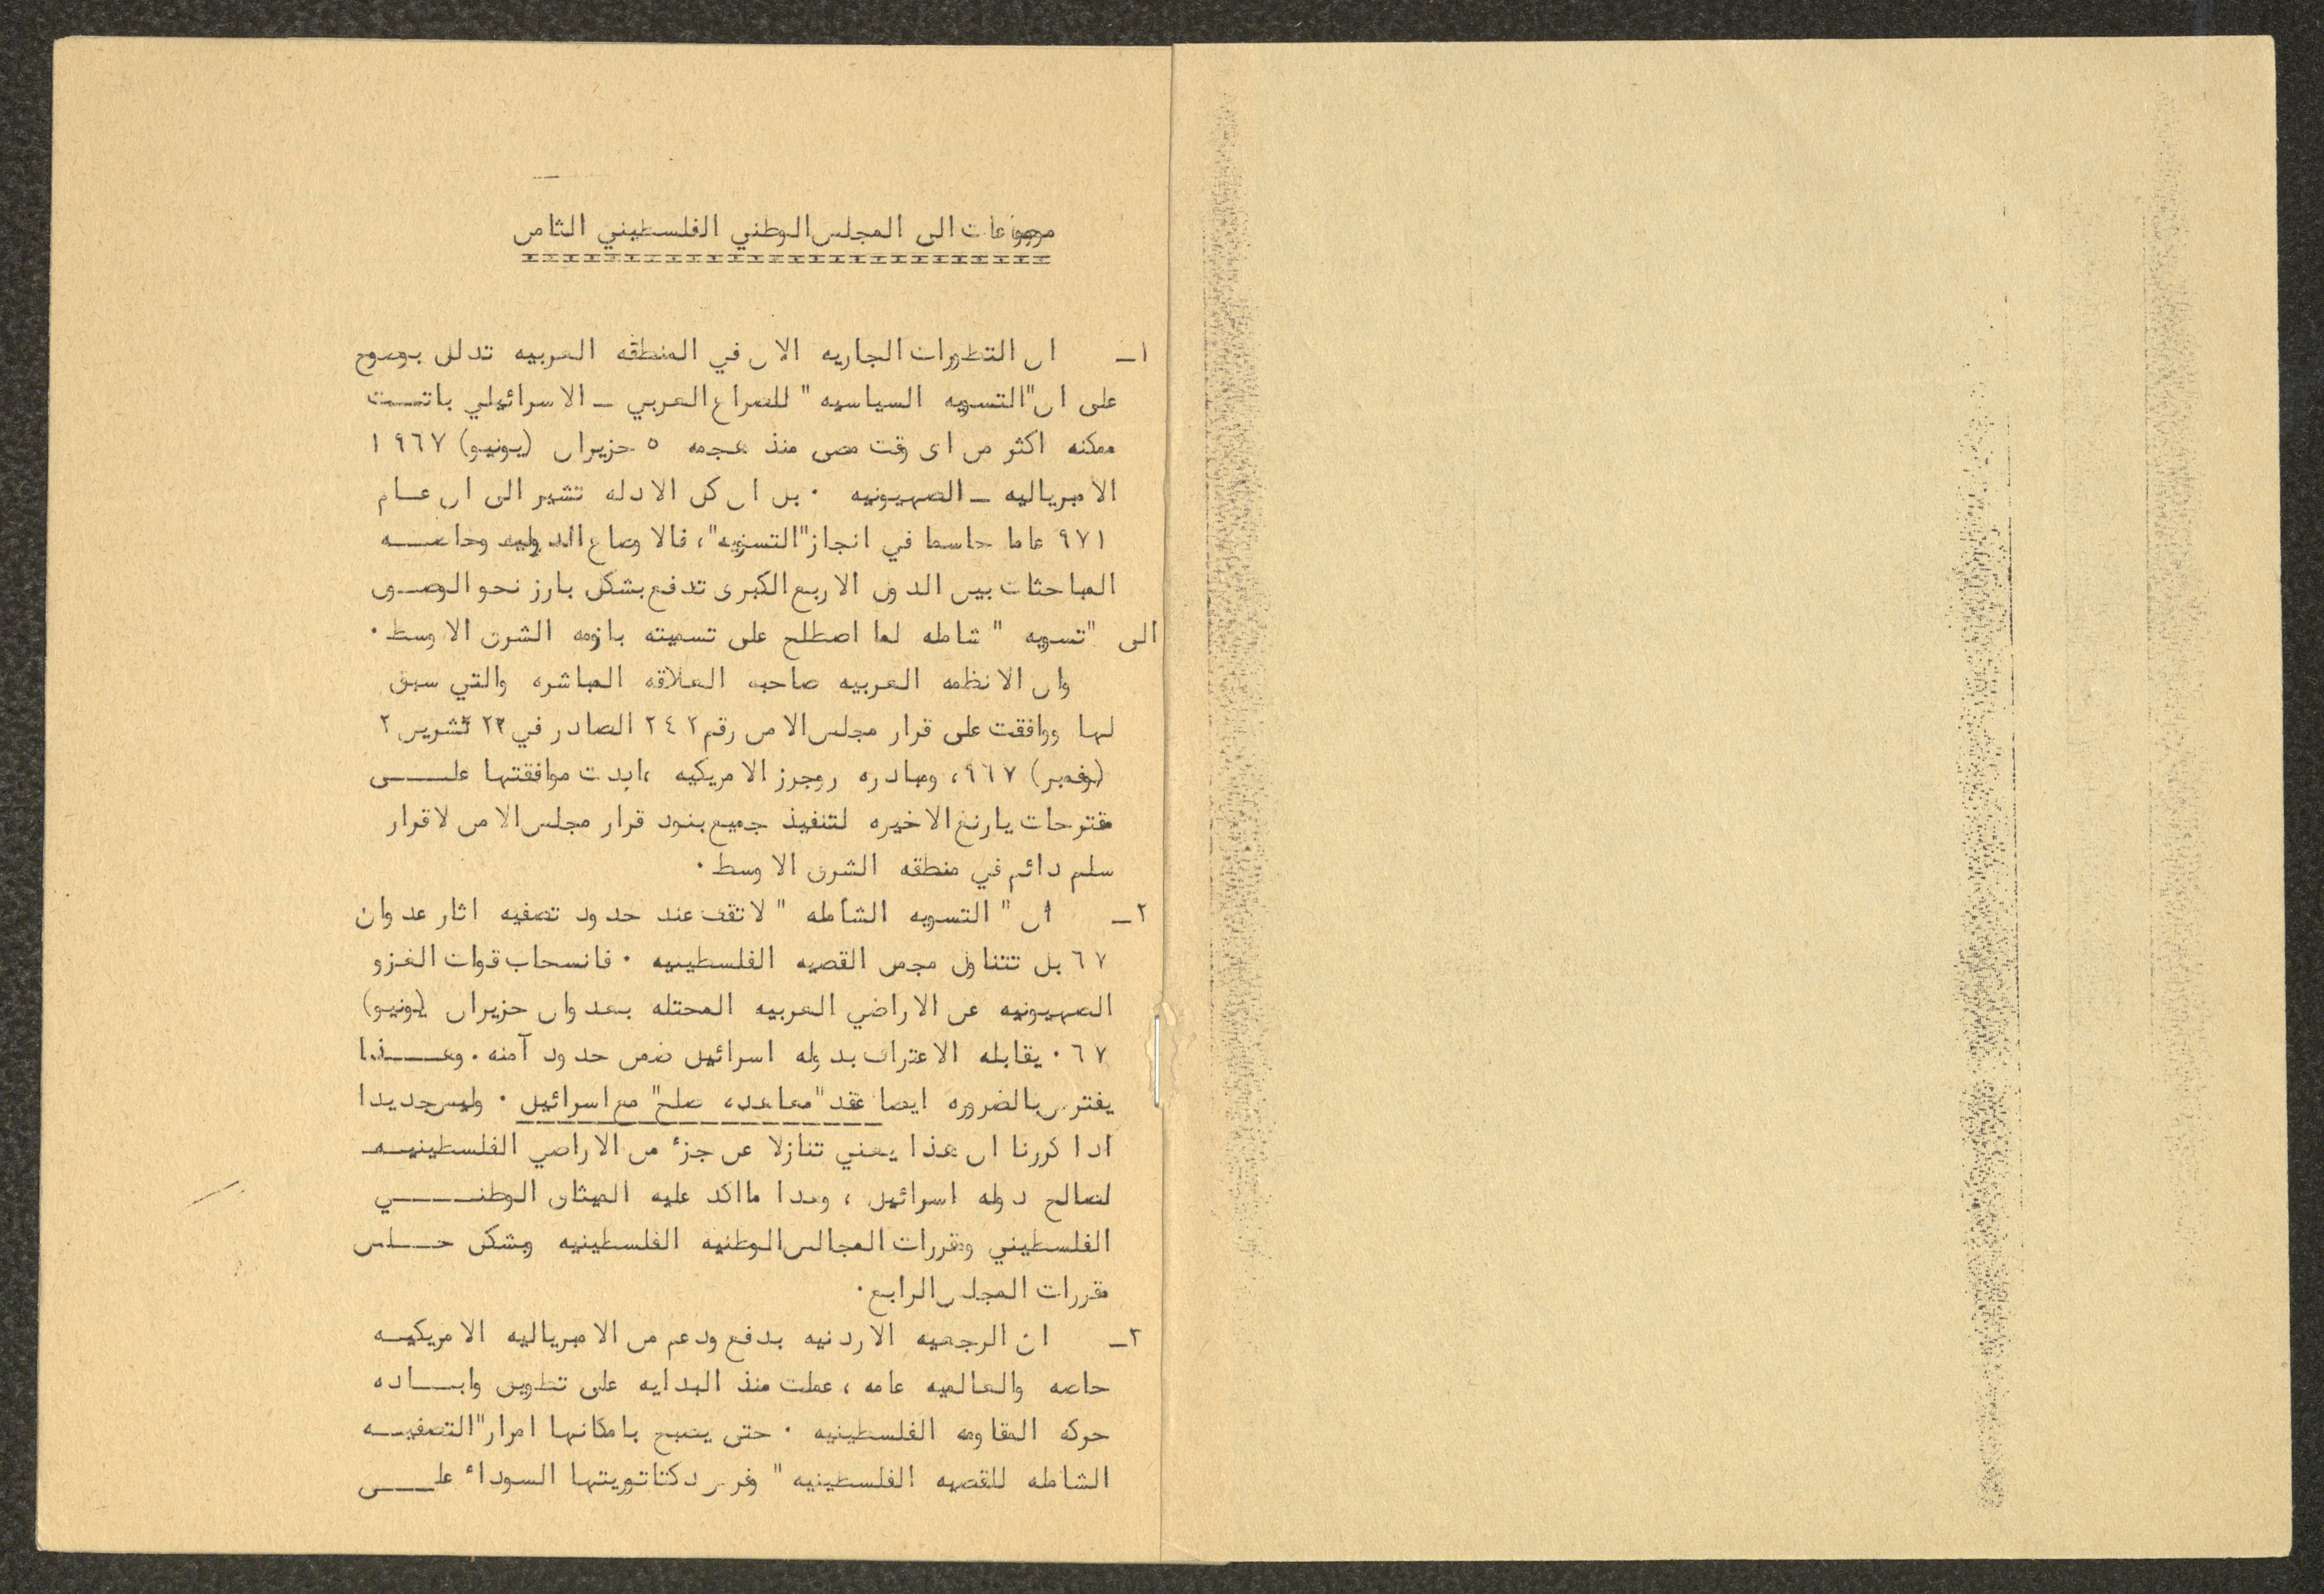 موضوعات الى المجلس الوطني الفلسطيني الثامن
١ــ ان التطورات الجاريه الان في المنطقه العربيه تدلل بوضوح
على ان "التسويه السياسيه" للصراع العربي ــ الاسرائيلي باتــت
ممكنه اكثر من اى وقت مضى منذ هجمه ٥ حزيران (يونيو) ١٩٦٧
الامبرياليه ــ الصهيونيه ٠ بل ان كل الادله تشير الى ان عــام
٩٧١ عاما حاسما في انجاز "التسويه"، فالاوضاع الدوليه وخاصــه
المباحثات بين الدول الاربع الكبرى تدفع بشكل بارز نحو الوصــول
الى "تسويه" شامله لما اصطلح على تسميته بازمه الشرق الاوسط ٠
وان الانظمه العربيه صاحبه العلاقه المباشره والتي سبق
لها ووافقت على قرار مجلس الامن رقم ٢٤٢ الصادر في ٢٢ تشرين ٢
(نوفمبر) ٩٦٧، ومبادره روجرز الامريكيه ،ابدت موافقتها علــــى
مقترحات يارنغ الاخيره لتنفيذ جميع بنود قرار مجلس الامن لاقرار
سلم دائم في منطقه الشرق الاوسط ٠
٢ــ ان " التسويه الشامله " لاتقف عند حدود تصفيه اثار عدوان
٦٧ بل تتناول مجمل القضيه الفلسطينيه ٠ فانسحاب قوات الغزو
الصهيونيه عن الاراضي العربيه المحتله بعدوان حزيران (يونيو)
٦٧ ٠ يقابله الاعتراف بدوله اسرائيل ضمن حدود آمنه ٠ وهــــذا
يفترض بالضروره ايضا عقد "معاهده صلح" مع اسرائيل ٠ وليس جديدا
اذا كررنا ان هذا يعني تنازلا عن جزء من الاراضي الفلسطينيــه
لصالح دوله اسرائيل ، وهذا مااكد عليه الميثاق الوطنــــي
الفلسطيني ومقررات المجالس الوطنيه الفلسطينيه وبشكل خــاص
مقررات المجلس الرابع ٠
٣ــ ان الرجعيه الاردنيه بدفع ودعم من الامبرياليه الامريكيــه
خاصه والعالميه عامه ، عملت منذ البدايه على تطويق وابــاده
حركه المقاومه الفلسطينيه ٠ حتى يصبح بامكانها امرار "التصفيــه
الشامله للقضيه الفلسطينيه " وفرض دكتاتوريتها السوداء علــــى